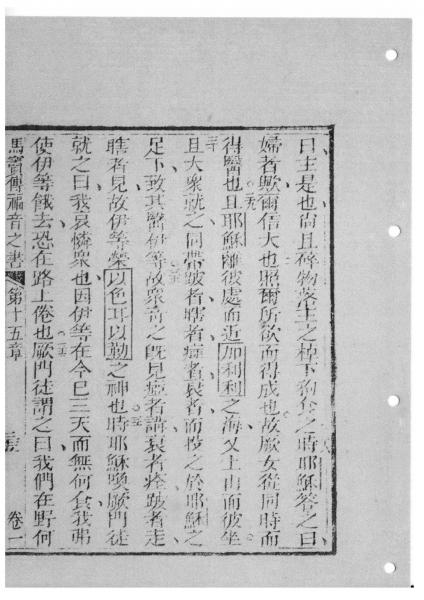 曰主是也尚且碎物落主之棹下狗食之時耶穌答之曰
婦者歟爾信大也照爾所欲而得成也故厥女從同時而
得醫也且耶穌離彼處而近加利利之海又上山而彼坐
且大眾就之同帶跛者瞎者瘂者衰者而投之於耶穌之
足下致其醫伊等故眾奇之既見瘂者講衰者痊跛者走
瞎者見故伊等榮以色耳以勒之神也時耶穌喚厥門徒
就之曰我哀憐眾也因伊等在今已三天而無何食我弗
使伊等餓去恐在路上倦也厥門徒謂之曰我們在野何
馬竇傳福音之書 第十五章 卷一